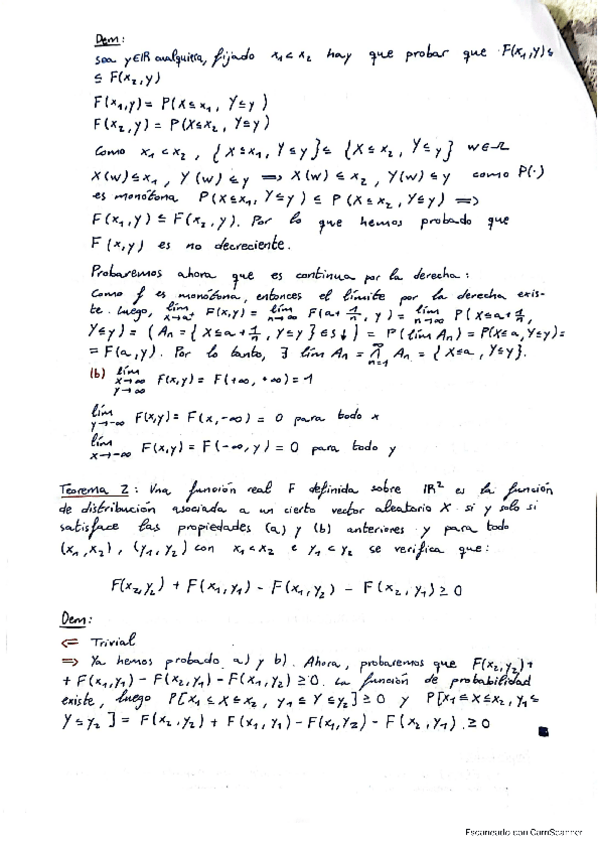 Dem:
sea y∈ℝ cualquiera, fijado x₁<x₂ hay que probar que F(x₁,y)≤
≤ F(x₂,y)
F(x₁,y) = P(X≤x₁, Y≤y)
F(x₂,y) = P(X≤x₂, Y≤y)
Como x₁<x₂, {X≤x₁, Y≤y} ⊆ {X≤x₂, Y≤y} w∈Ω
X(w)≤x₁, Y(w)≤y ⟹ X(w)≤x₂, Y(w)≤y como P(·)
es monótona P(X≤x₁, Y≤y) ≤ P(X≤x₂, Y≤y) ⟹
F(x₁,y) ≤ F(x₂,y). Por lo que hemos probado que
F(x,y) es no decreciente.
Probaremos ahora que es continua por la derecha:
Como f es monótona, entonces el límite por la derecha exis-
te. Luego, lím x→a⁺ F(x,y) = lím n→∞ F(a+1/n, y) = lím n→∞ P(X≤a+1/n,
Y≤y) = (Aₙ = {X≤a+1/n, Y≤y} ∈ s↓) = P(lím Aₙ) = P(X≤a, Y≤y) =
= F(a,y). Por lo tanto, ∃ lím Aₙ = ⋂ₙ₌₁^∞ Aₙ = {X≤a, Y≤y}.
(b) lím x→∞ y→∞ F(x,y) = F(+∞, +∞) = 1
lím y→-∞ F(x,y) = F(x,-∞) = 0 para todo x
lím x→-∞ F(x,y) = F(-∞,y) = 0 para todo y
Teorema 2: Una función real F definida sobre ℝ² es la función
de distribución asociada a un cierto vector aleatorio X si y solo si
satisface las propiedades (a) y (b) anteriores y para todo
(x₁,x₂), (y₁,y₂) con x₁<x₂ e y₁<y₂ se verifica que:
F(x₂,y₂) + F(x₁,y₁) - F(x₁,y₂) - F(x₂,y₁) ≥ 0
Dem:
⇐ Trivial
⇒ Ya hemos probado a) y b). Ahora, probaremos que F(x₂,y₂)+
+ F(x₁,y₁) - F(x₂,y₁) - F(x₁,y₂) ≥ 0. La función de probabilidad
existe, luego P[x₁≤X≤x₂, y₁≤Y≤y₂] ≥ 0 y P[x₁≤X≤x₂, y₁≤
Y≤y₂] = F(x₂,y₂) + F(x₁,y₁) - F(x₁,y₂) - F(x₂,y₁) ≥ 0
Escaneado con CamScanner